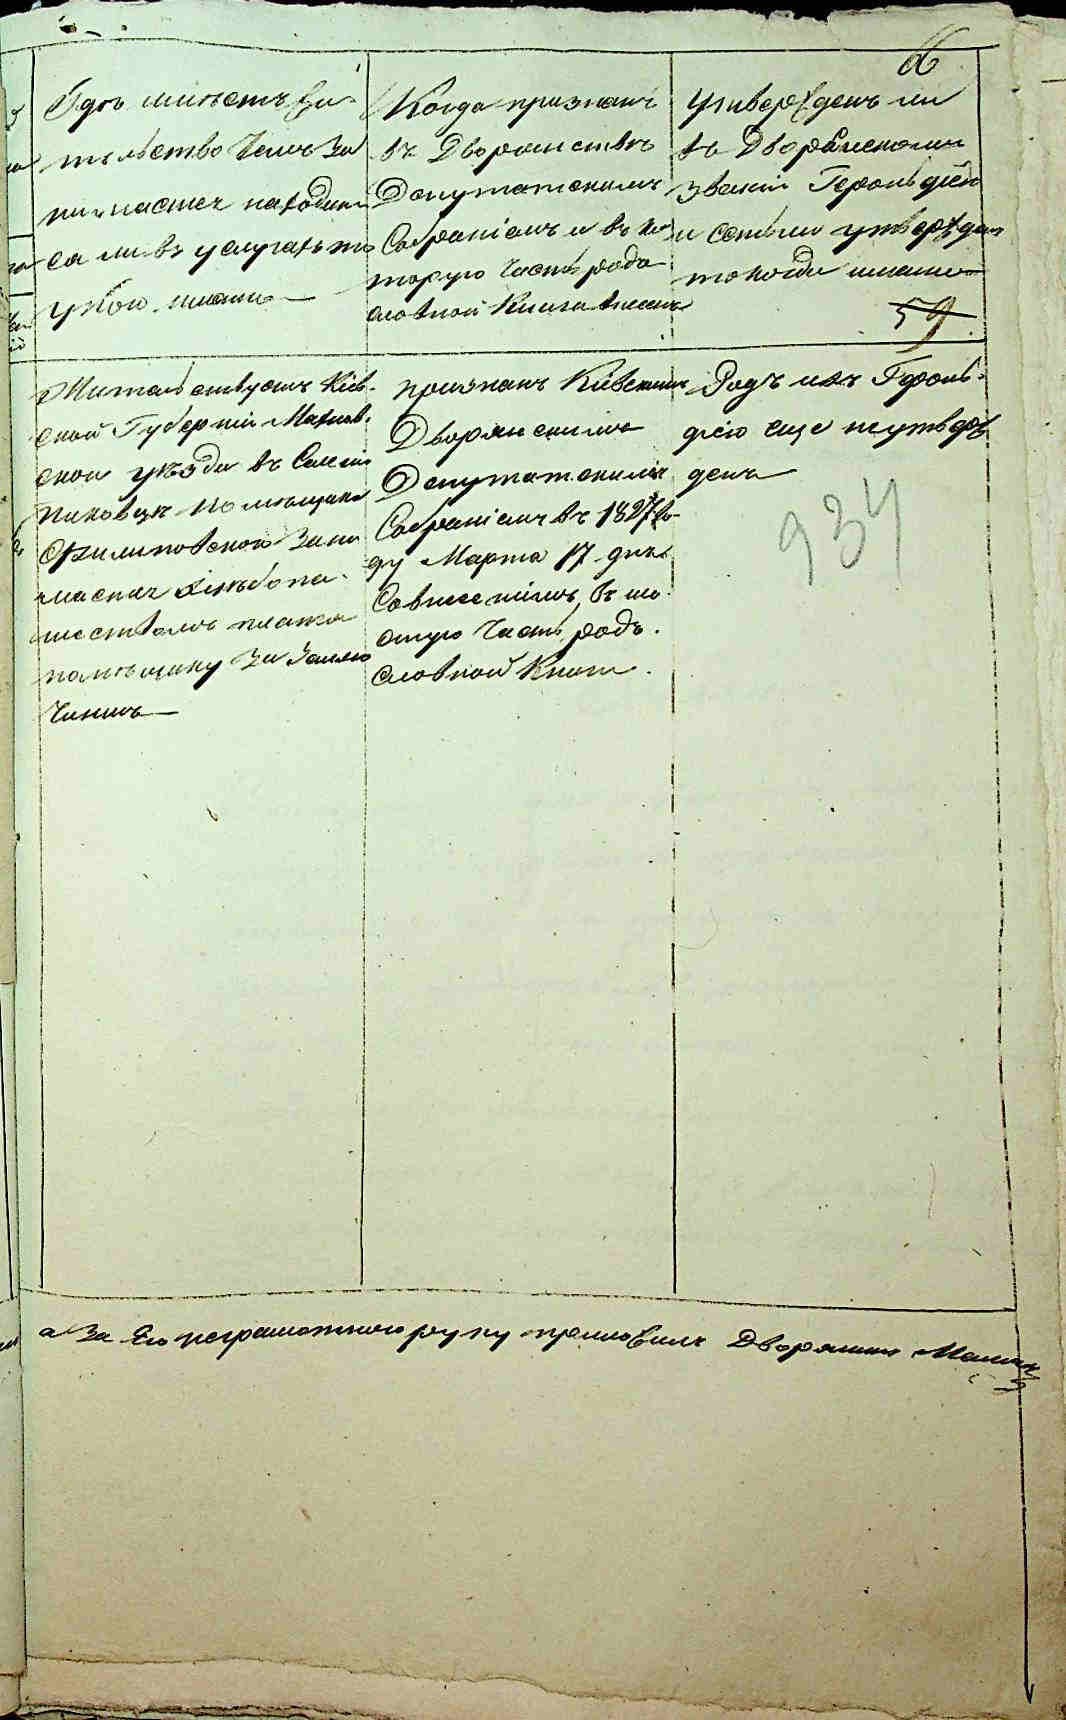 66
Гдѣ имѣетъ жи-
тельство чемъ за
нимается находил
ся ли въ услугахъ то
у кого именно
Когда признанъ
въ Дворянствѣ
Депутатскимъ
Собраніемъ и въ ко
торую часть родо
словной Книги внесенъ
Утвержденъ ли
въ Дворянскомъ
званіи Герольдіею
и естьли утвержден
то когда именно
59
Жительствуетъ Кіев-
ской Губерніи Махнов-
ской уѣзда въ Селеніи
помѣщика
Филиповского Зани
мается Хлѣбопа-
шествомъ платя
помѣщику за Землю
Чиншъ
признанъ Кіевскимъ
Дворянскимъ
Депутатскимъ
Собраніемъ въ 1827 го-
ду Марта 17 дня
Совнесеніемъ въ ше
стую Часть родо-
словной Книги.
Родъ ихъ Героль-
діею еще неутверж
денъ
934
а За Его неграмотного руку приложилъ Дворянинъ